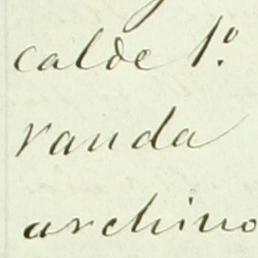 calde 1.º
randa
archino